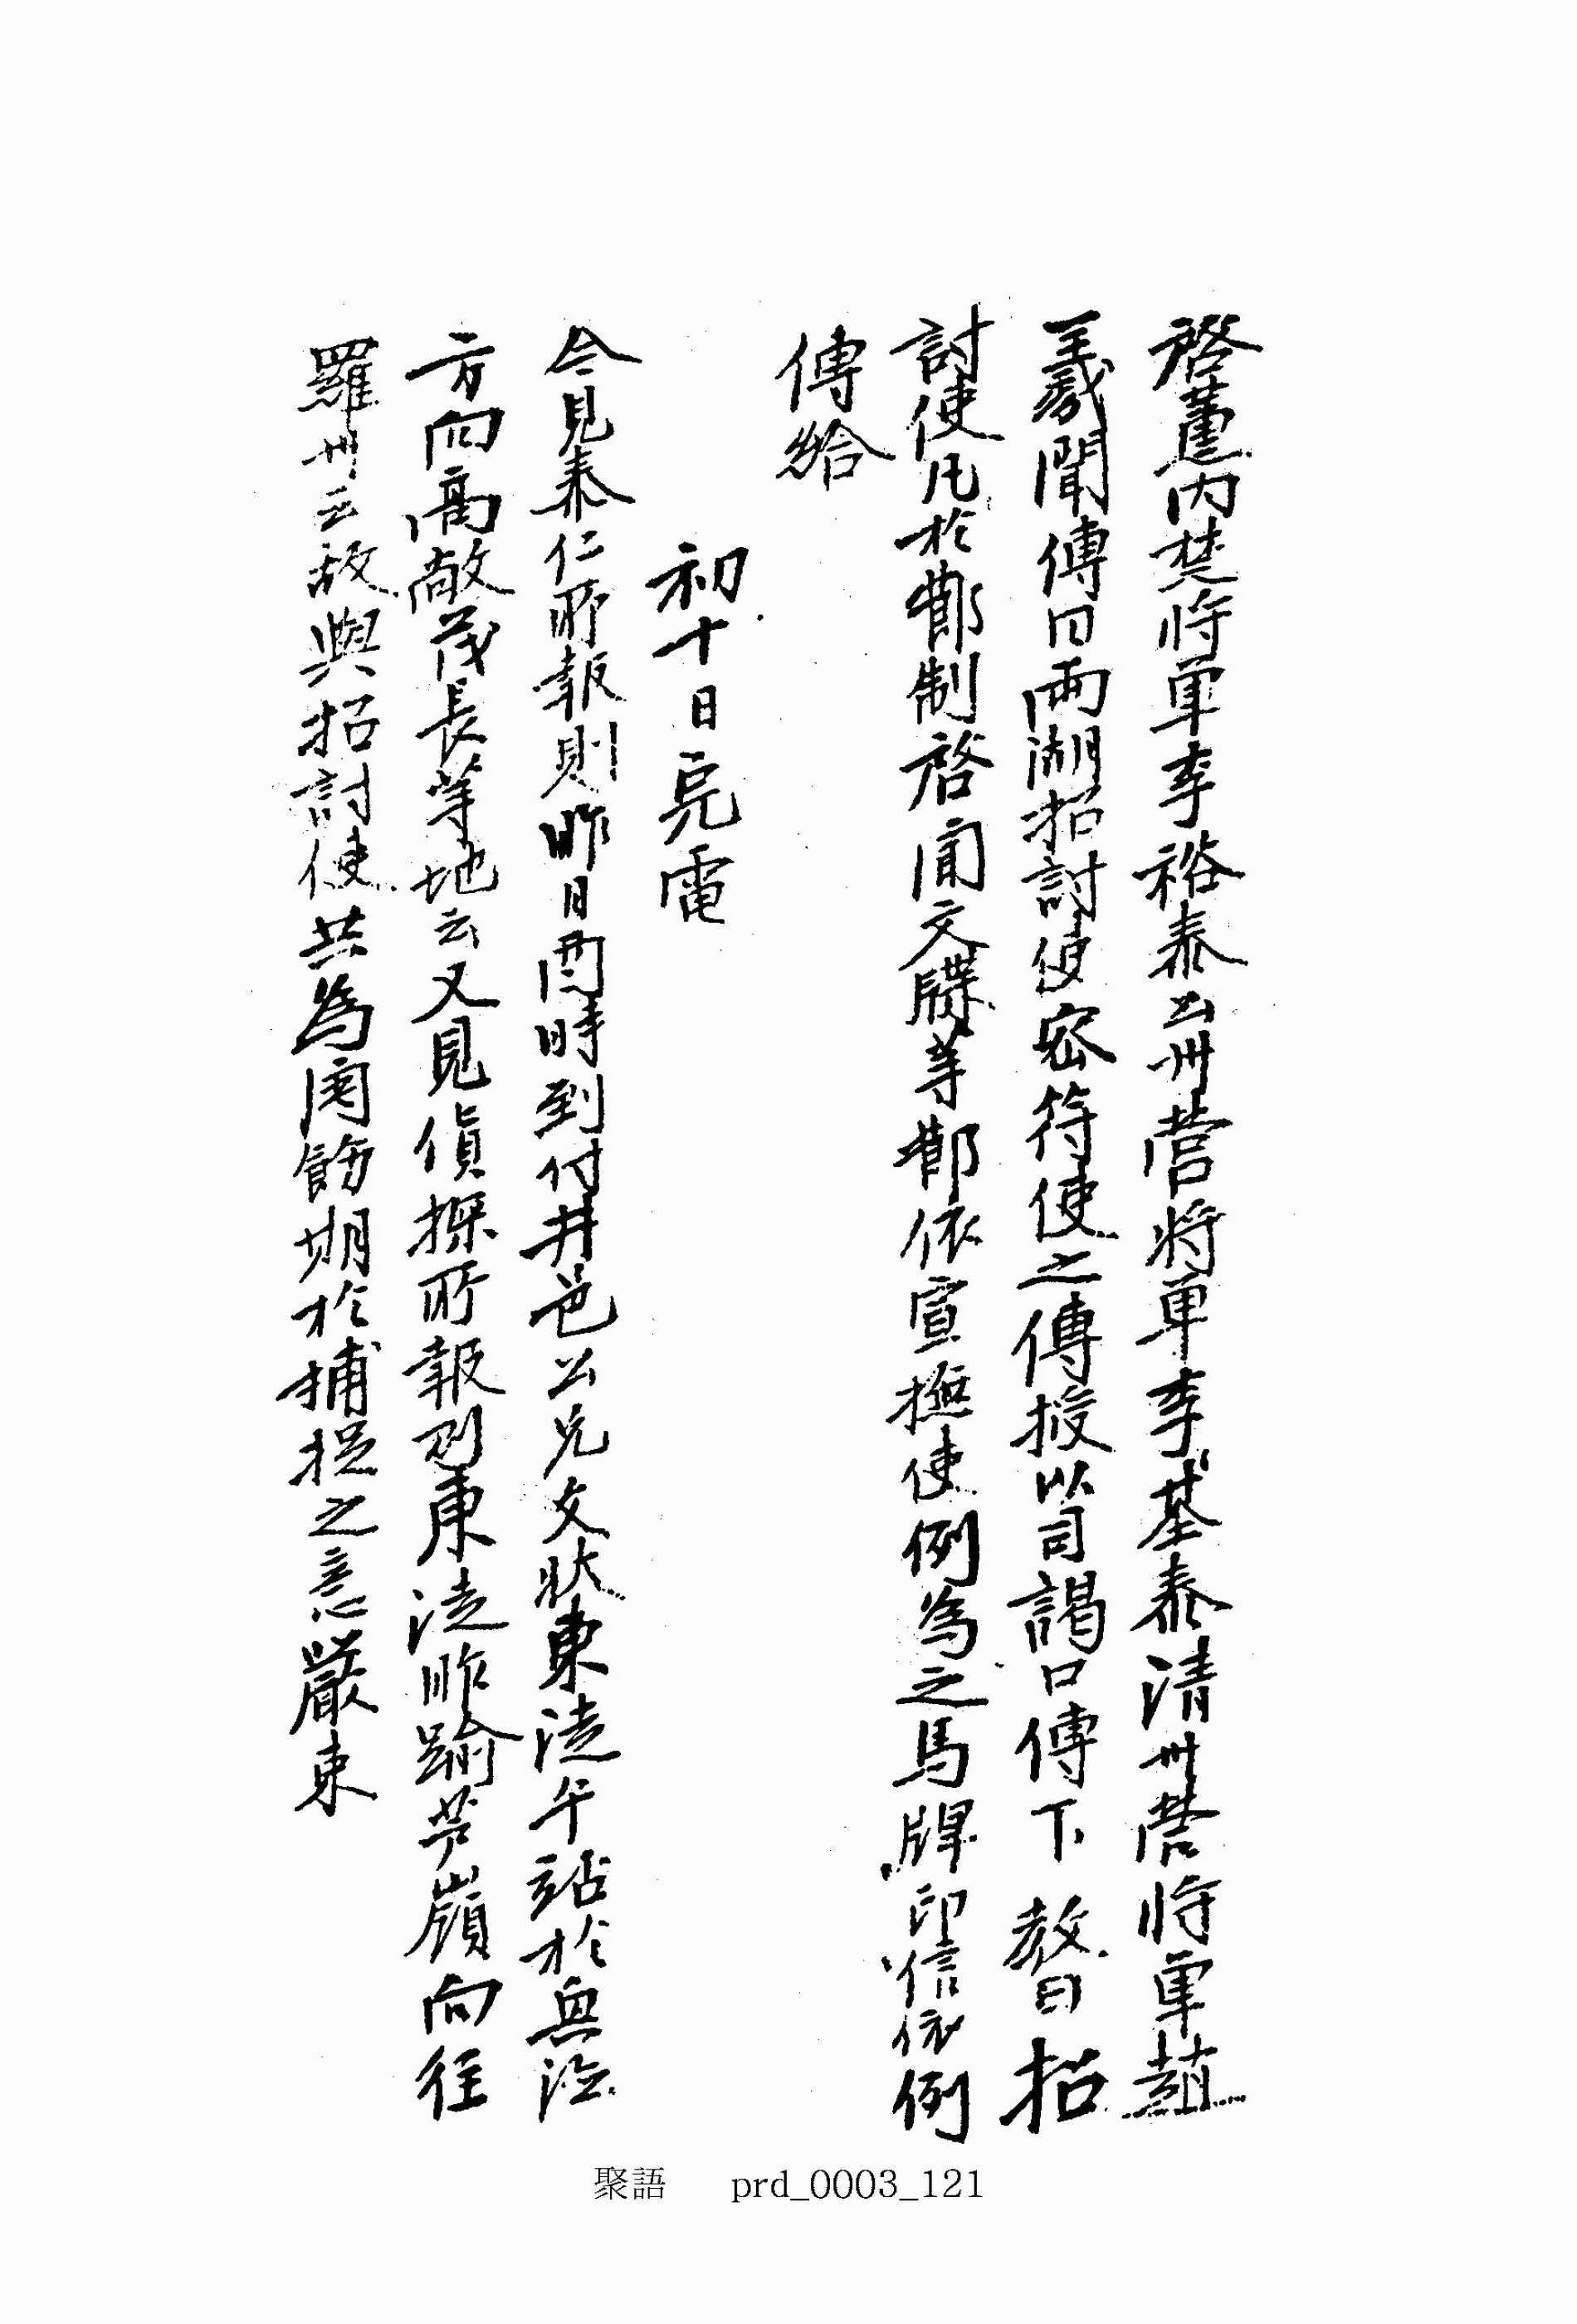 啓薰內埜將軍李裕泰公州營將軍李基泰淸州營將軍趙
羲聞傳曰兩湖招討使密符使之傳授以司謁口傳下敎曰招
討使凡於節制啓聞文牒等節依宣撫使例爲之馬牌印信依例
傳給
初十日完電
今見泰仁所報則昨日酉時到付井邑公兄文狀東徒午站於無法
方向高敞茂長等地云又見偵探所報則東徒昨踰芦嶺向往
羅州云故與招討使共爲関飭期於捕捉之意嚴束
聚語 prd_0003_121